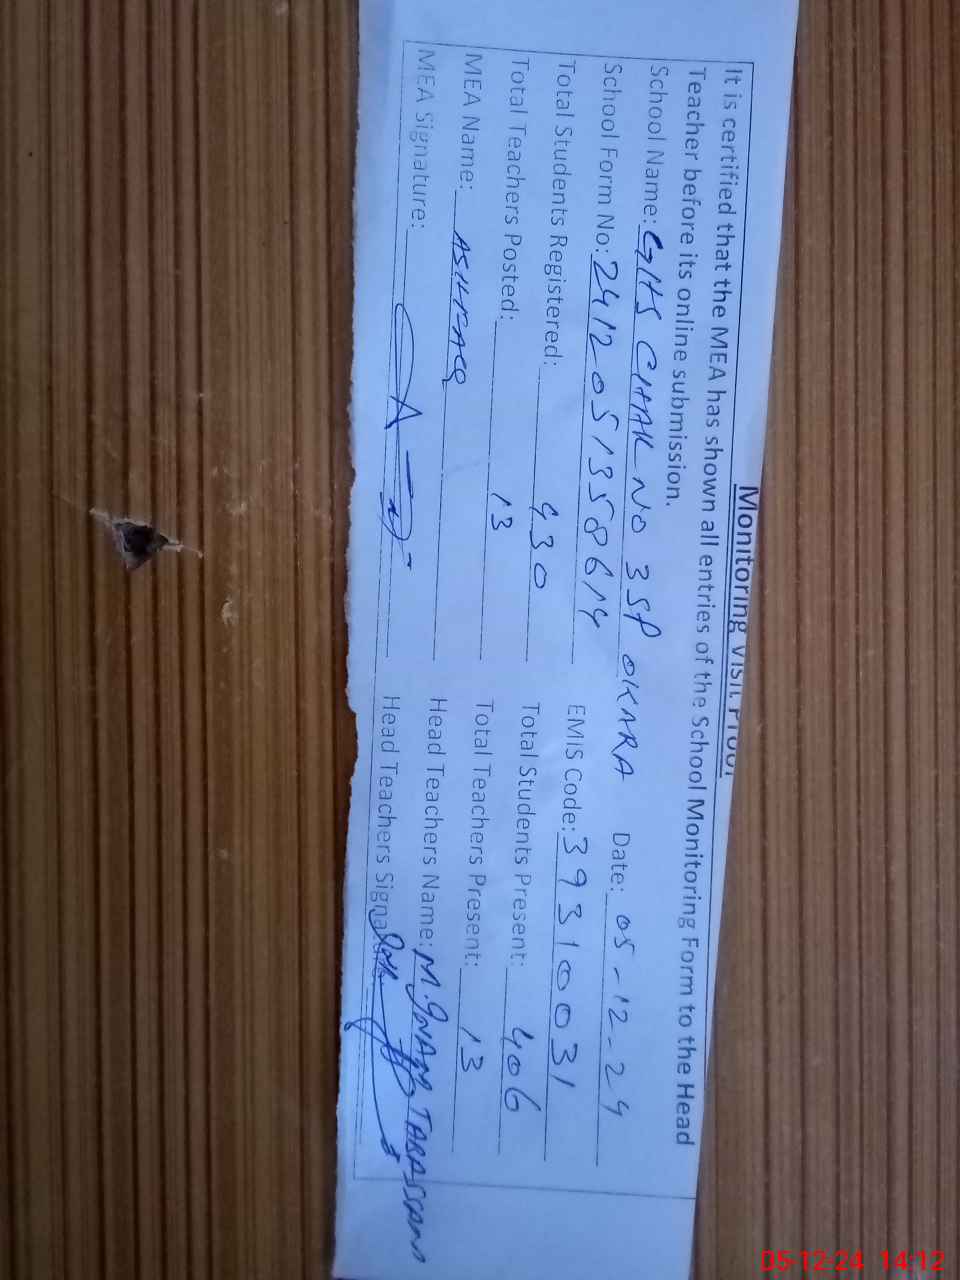 Monitoring Visit Proof
It is certified that the MEA has shown all entries of the School Monitoring Form to the Head
Teacher before its online submission.
School Name: GHS CHAK NO 3SP OKARA Date: 05-12-24
School Form No: 2412051358614 EMIS Code: 39310031
Total Students Registered: 430 Total Students Present: 406
Total Teachers Posted: 13 Total Teachers Present: 13
MEA Name: ASHFAQ Head Teachers Name: M.
MEA Signature: Head Teachers Signature:
05-12-24 14:12